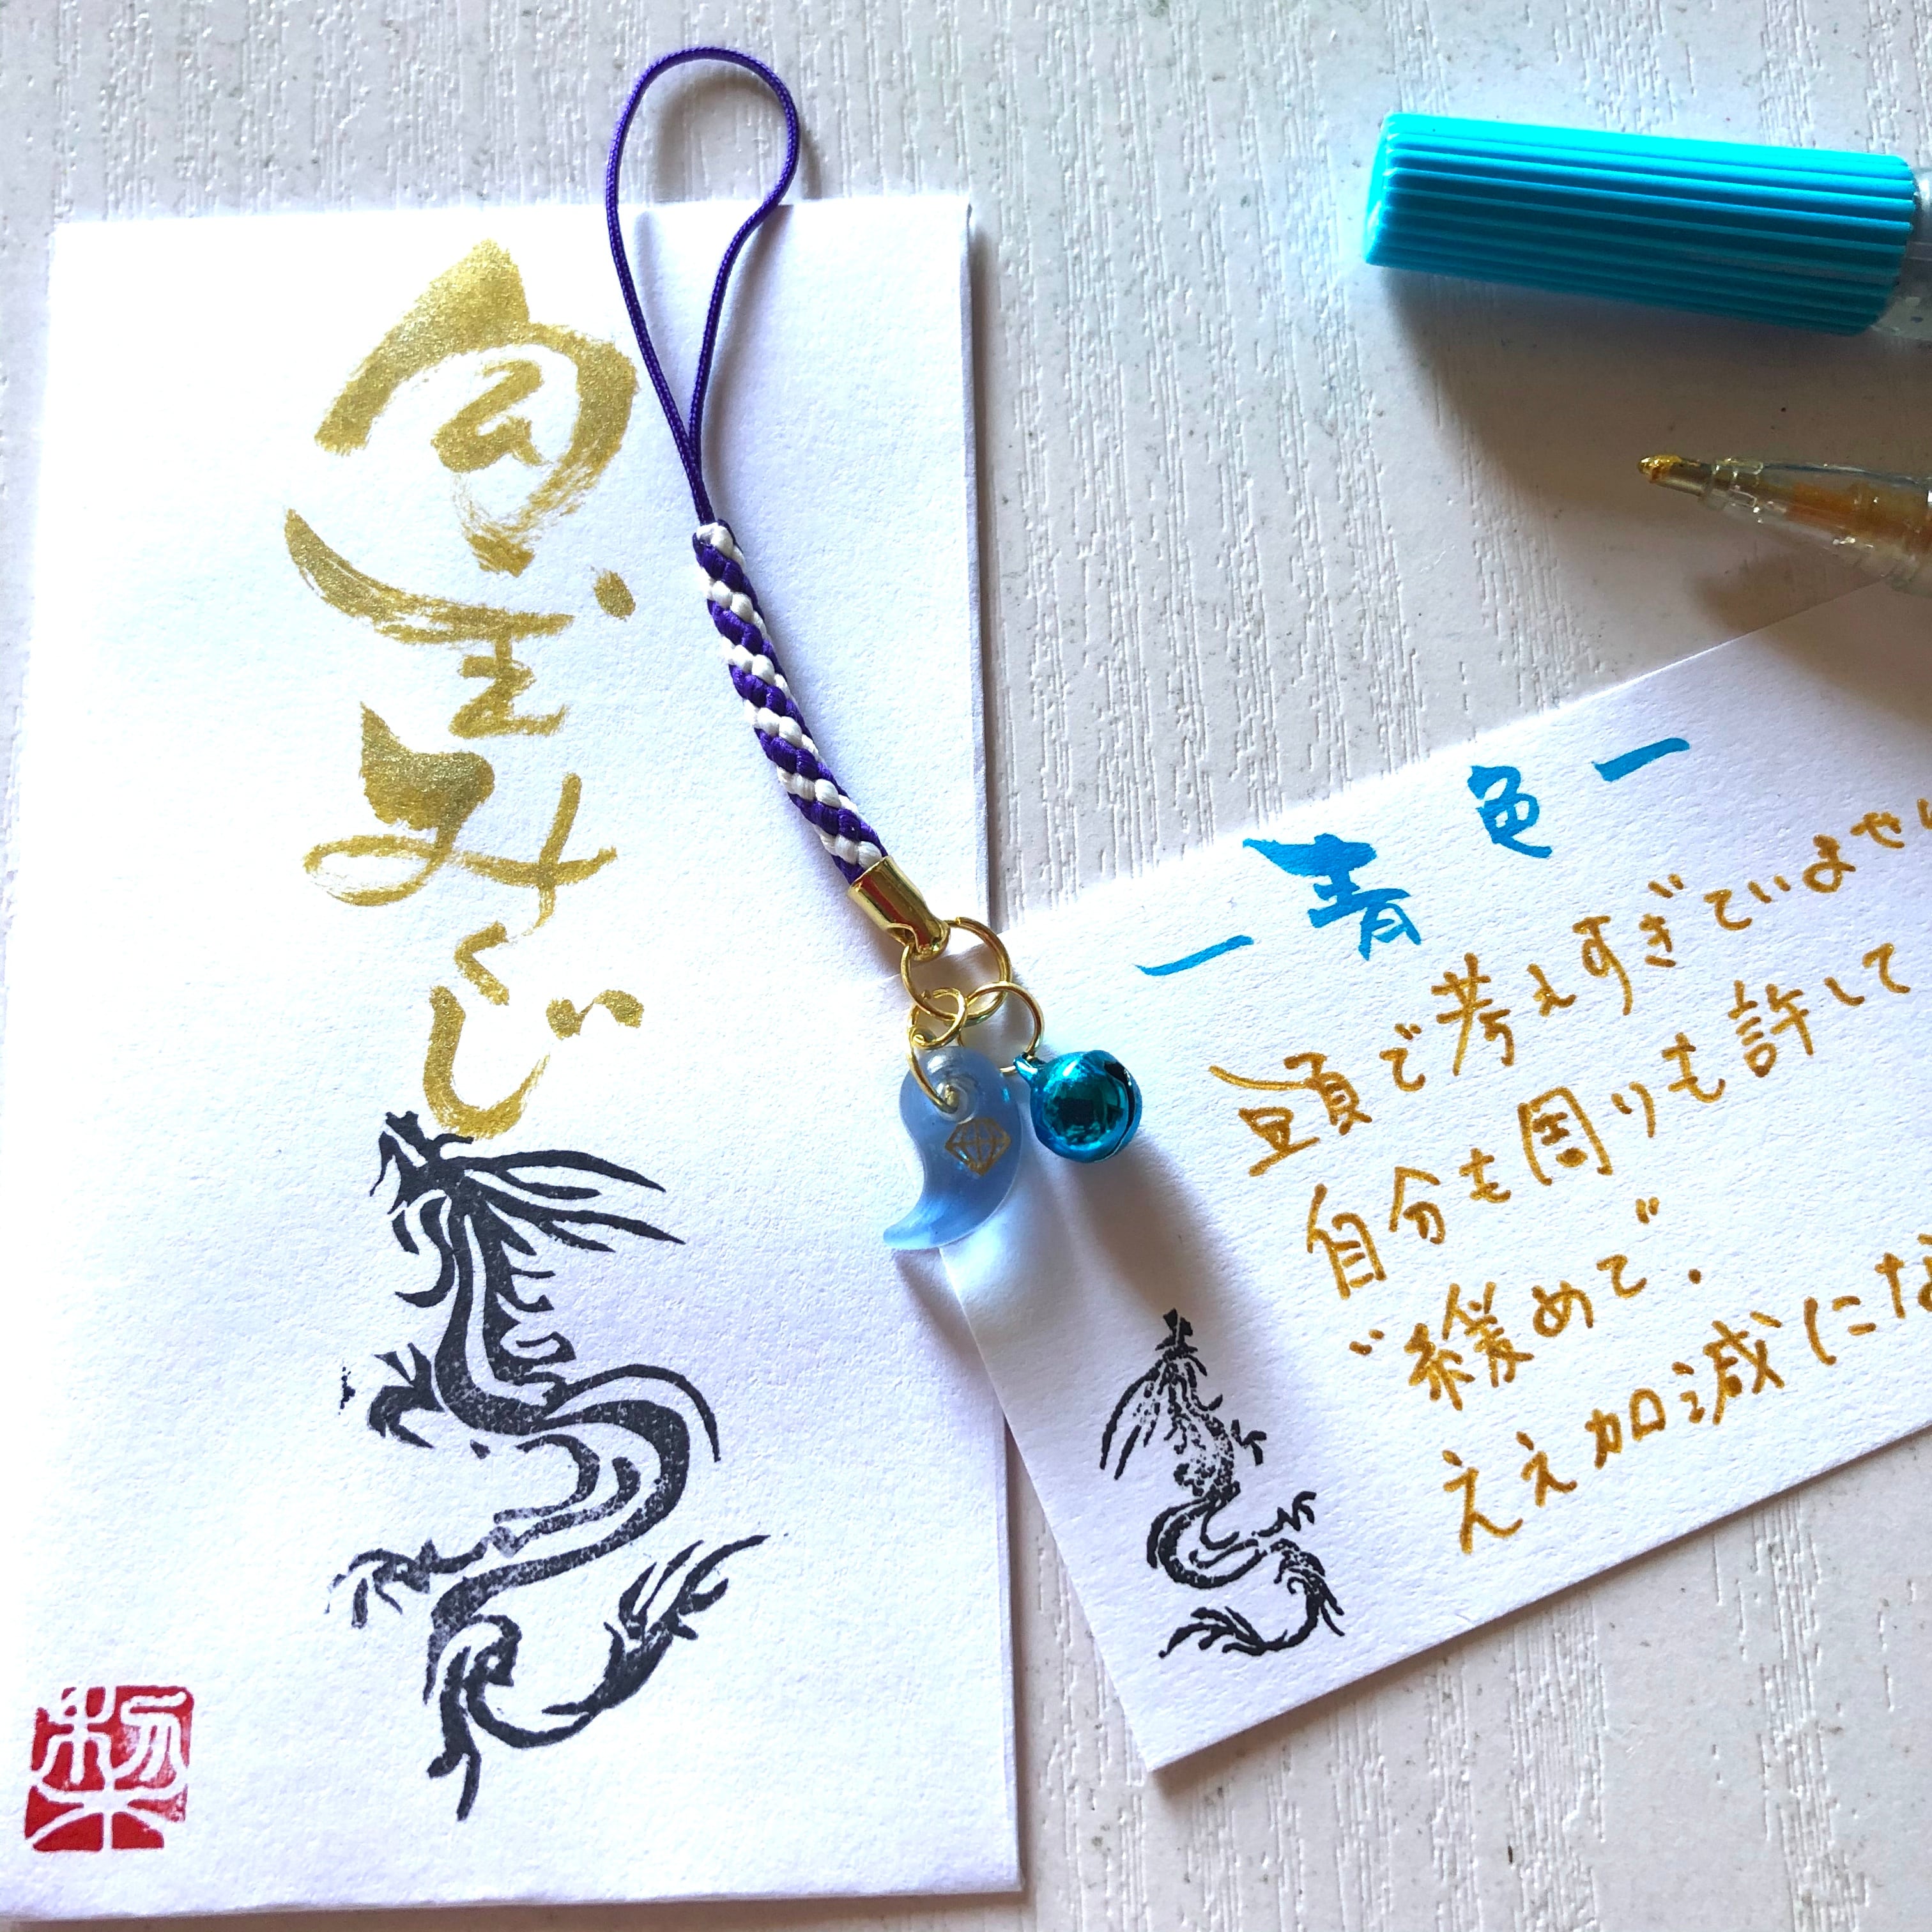 勾玉みくじ
ー青色ー
頭で考えすぎていませ
自分も周りも許して
"緩めて".
ええ加減にな